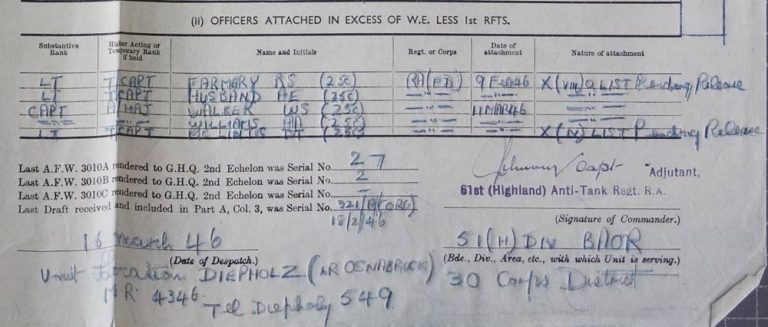 (ii) OFFICERS ATTACHED IN EXCESS OF W.E. LESS 1st RFTS.
Substantive Rank Higher Acting or Temporary Rank if held Name and Initials Regt. or Corps Date of attachment Nature of attachment
LT T/CAPT FARMERY RS (25c) RA(FD) 9 Feb 46 X(viii) Q LIST Pending Release
LT T/CAPT HUSBAND AE (25c) —"— —"— —"—
CAPT A/MAJ WALKER WS (25c) —"— 11 MAR 46 —"—
—"— —"— WILLIAMS (25c) —"— —"—
LT T/CAPT (25c) —"— X(IV) LIST Pending Release
Last A.F.W. 3010A rendered to G.H.Q. 2nd Echelon was Serial No. 27
Last A.F.W. 3010B rendered to G.H.Q. 2nd Echelon was Serial No. 2
Last A.F.W. 3010C rendered to G.H.Q. 2nd Echelon was Serial No. —
Last Draft received and included in Part A, Col. 3, was Serial No. 321
18/2/46
Capt Adjutant,
61st (Highland) Anti-Tank Regt. R.A.
(Signature of Commander.)
16 March 46
(Date of Despatch.)
51(H) DIV BAOR
(Bde., Div., Area, etc., with which Unit is serving.)
Unit Location DIEPHOLZ (NR OSNABRUCK)
30 Corps District
MR 4346 Tel Diepholz 549